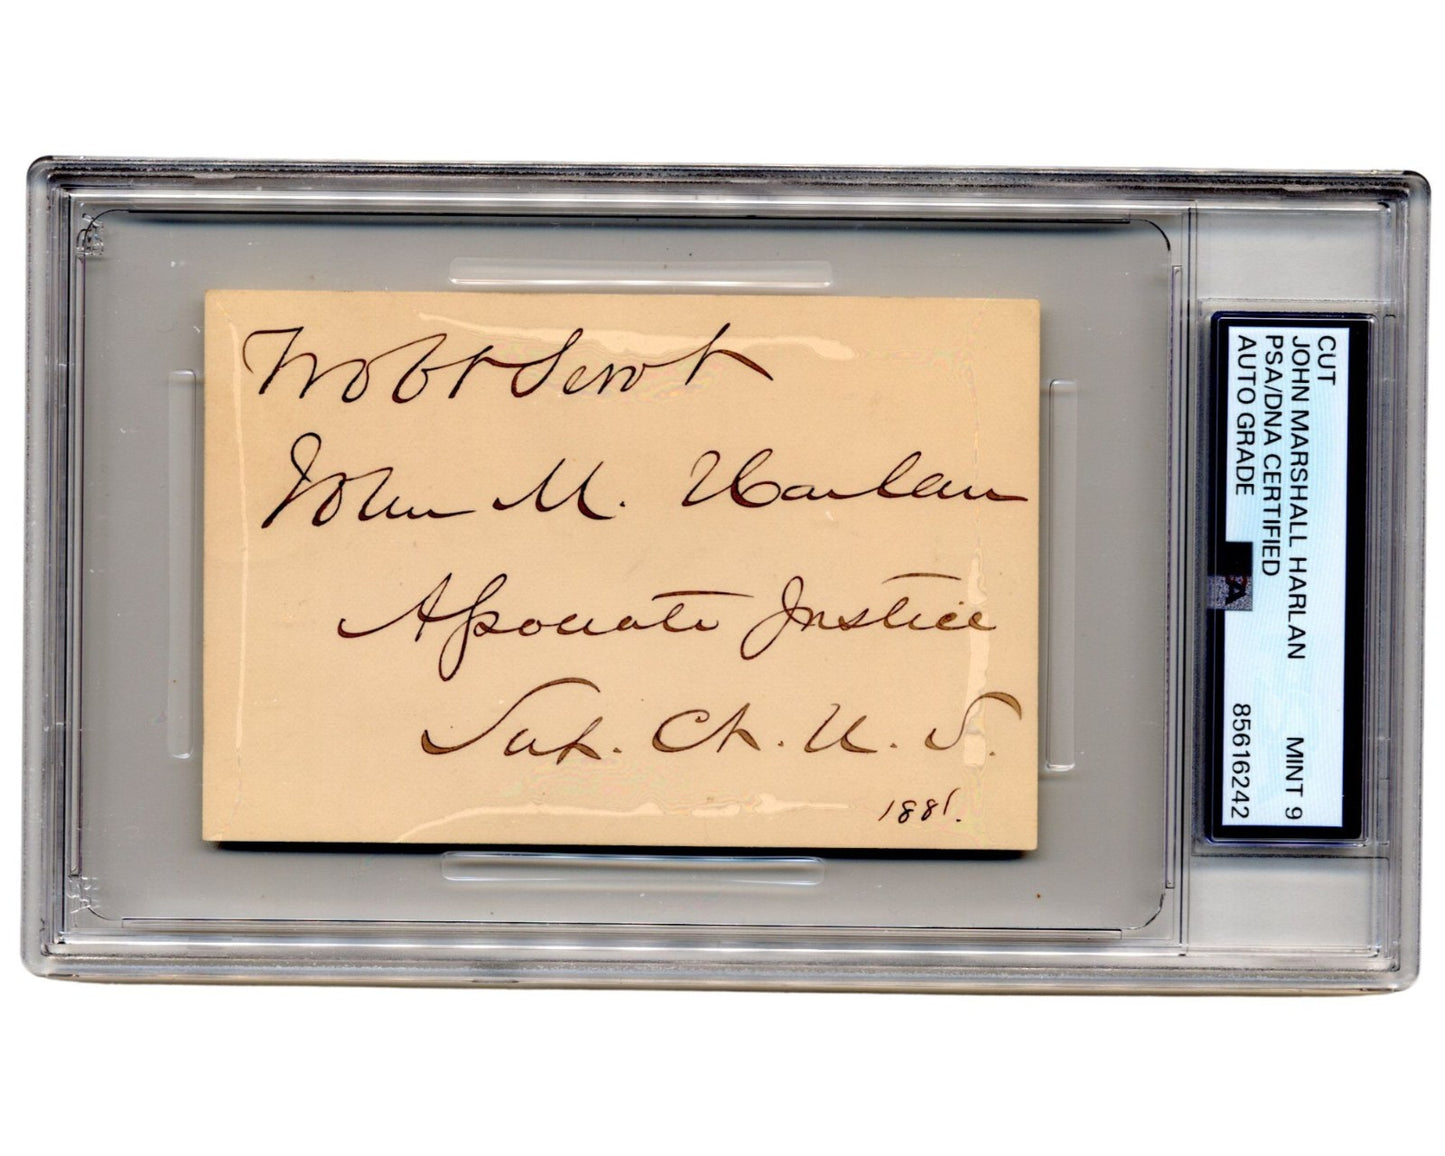 Yr Obt Servt
John M. Harlan
Associate Justice
Sup. Ct. U. S.
1881.
CUT
JOHN MARSHALL HARLAN MINT 9
PSA/DNA CERTIFIED
AUTO GRADE 85616242